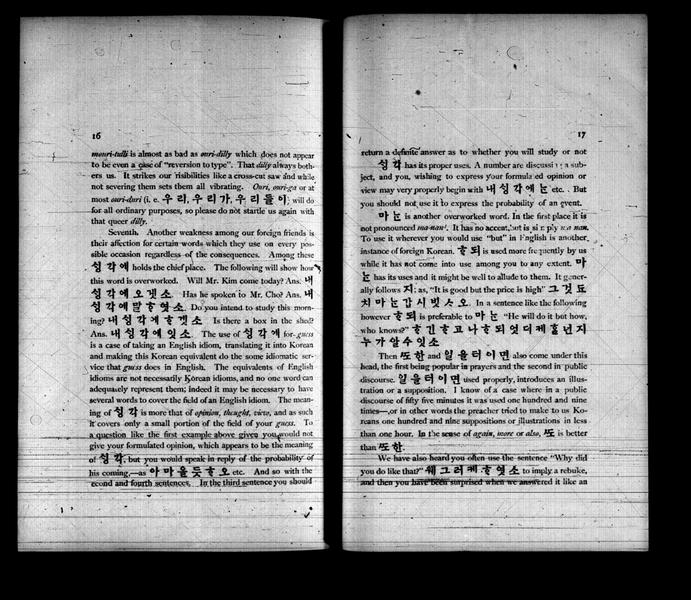 16
mouri-tulli is almost as bad as ouri-dilly which does not appear
to be even a case of "reversion to type". That dilly always both-
ers us. It strikes our risibilities like a cross-cut saw and while
not severing them sets them all vibrating. Ouri, ouri-ga or at
most ouri-duri (i. e. 우리, 우리가, 우리들이) will do
for all ordinary purposes, so please do not startle us again with
that queer dilly.
Seventh. Another weakness among our foreign friends is
their affection for certain words which they use on every pos-
sible occasion regardless of the consequences. Among these
싱각에 holds the chief place. The following will show how
this word is overworked. Will Mr. Kim come today? Ans. 내
싱각에오겟소. Has he spoken to Mr. Cho? Ans. 내
싱각에말ᄒᆞ엿소. Do you intend to study this morn-
ing? 내싱각에ᄒᆞ겟소 Is there a box in the shed?
Ans. 내싱각에잇소. The use of 싱각에 for guess
is a case of taking an English idiom, translating it into Korean
and making this Korean equivalent do the some idiomatic ser-
vice that guess does in English. The equivalents of English
idioms are not necessarily Korean idioms, and no one word can
adequately represent them; indeed it may be necessary to have
several words to cover the field of an English idiom. The mean-
ing of 싱각 is more that of opinion, thought, view, and as such
it covers only a small portion of the field of your guess. To
a question like the first example above given you would not
give your formulated opinion, which appears to be the meaning
of 싱각, but you would speak in reply of the probability of
his coming,—as 아마올듯ᄒᆞ오 etc. And so with the
second and fourth sentences. In the third sentence you should
17
return a definite answer as to whether you will study or not
싱각 has its proper uses. A number are discussing a sub-
ject, and you, wishing to express your formulated opinion or
view may very properly begin with 내싱각에ᄂᆞᆫ etc. But
you should not use it to express the probability of an event.
마ᄂᆞᆫ is another overworked word. In the first place it is
not pronounced ma-nan'. It has no accent, but is simply ma nan.
To use it wherever you would use "but" in English is another
instance of foreign Korean. ᄒᆞ되 is used more frequently by us
while it has not come into use among you to any extent. 마
ᄂᆞᆫ has its uses and it might be well to allude to them. It gener-
ally follows 지; as, "It is good but the price is high" 그것됴
치마ᄂᆞᆫ갑시빗ᄉᆞ오. In a sentence like the following
however ᄒᆞ되 is preferable to 마ᄂᆞᆫ "He will do it but how,
who knows?" ᄒᆞ긴ᄒᆞ고나ᄒᆞ되엇더케ᄒᆞᆯ넌지
누가알수잇소
Then ᄯᅩ한 and 일을터이면 also come under this
head, the first being popular in prayers and the second in public
discourse. 일을터이면 used properly, introduces an illus-
tration or a supposition. I know of a case where in a public
discourse of fifty five minutes it was used one hundred and nine
times—,or in other words the preacher tried to make to us Ko-
reans one hundred and nine suppositions or illustrations in less
than one hour. In the sense of again, more or also, ᄯᅩ is better
than ᄯᅩ한.
We have also heard you often use the sentence "Why did
you do like that?" 웨그러케ᄒᆞ엿소 to imply a rebuke,
and then you have been surprised when we answered it like an